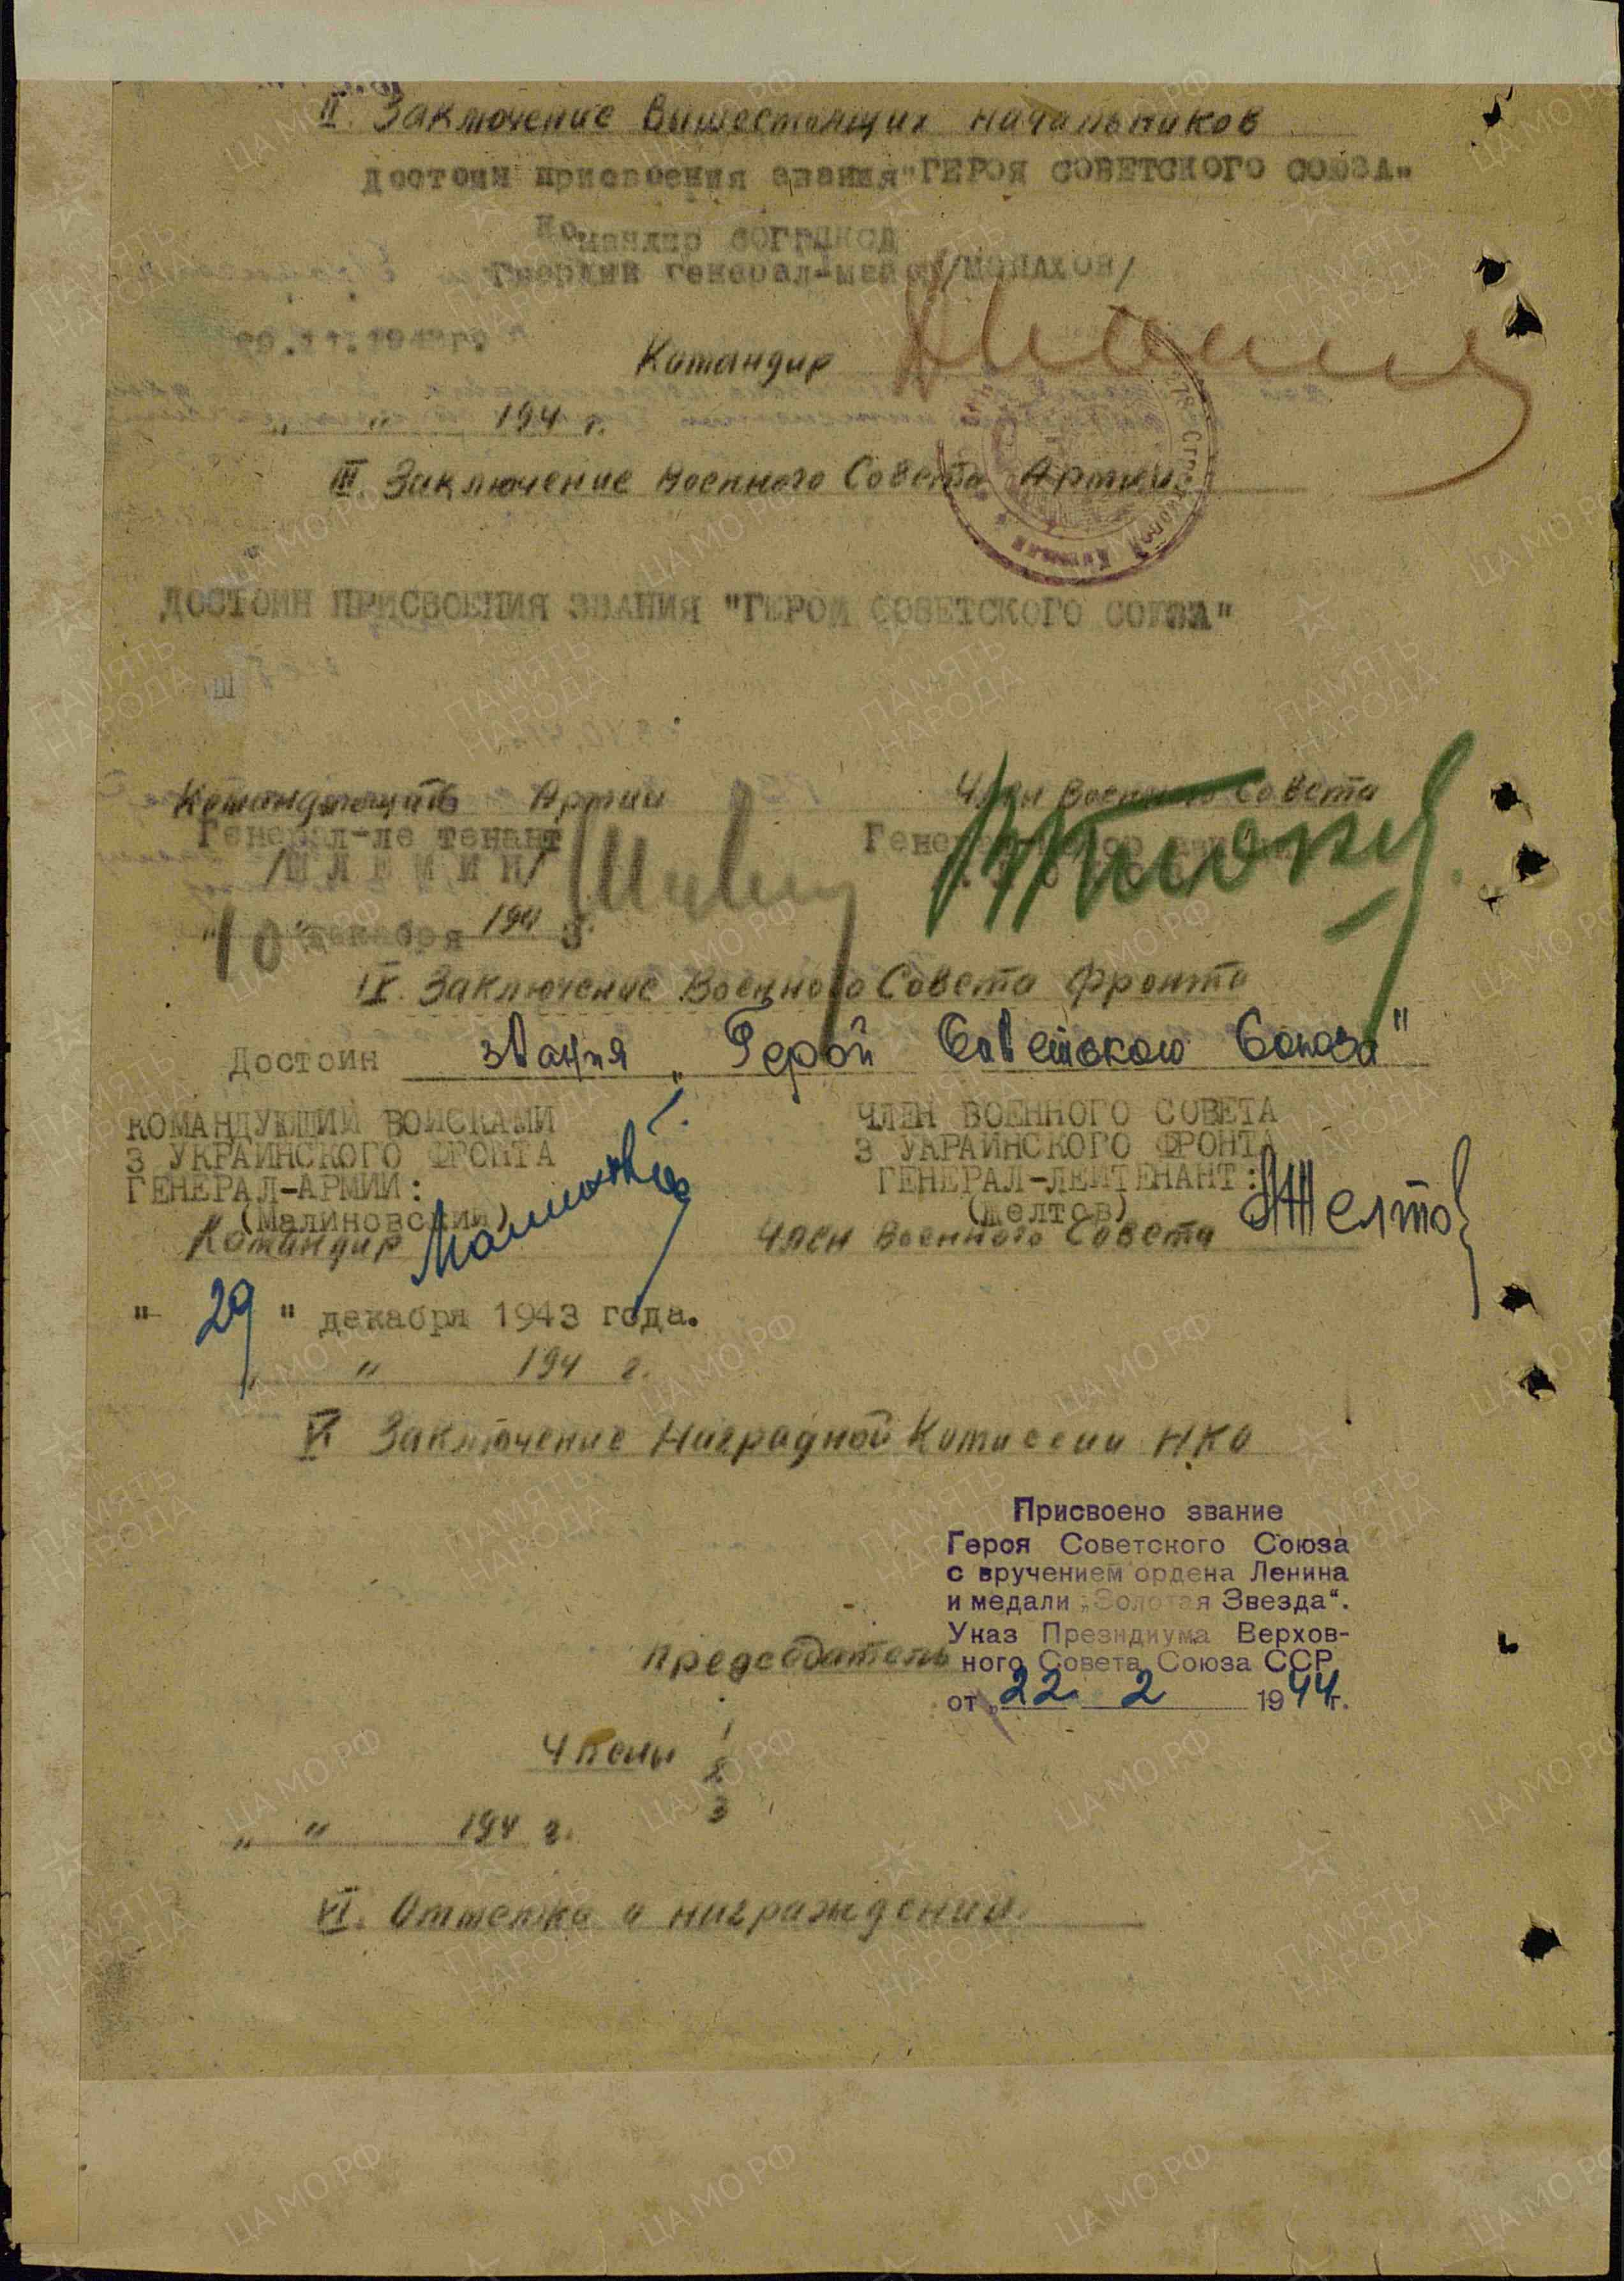 II. Заключение Вышестоящих начальников
достоин присвоения звания "ГЕРОЯ СОВЕТСКОГО СОЮЗА"
Командир
Гвардии генерал-майор /МОНАХОВ/
Командир
" " 194 г.
III. Заключение Военного Совета Армии
ДОСТОИН ПРИСВОЕНИЯ ЗВАНИЯ "ГЕРОЙ СОВЕТСКОГО СОЮЗА"
Командующий Армии Член Военного Совета
Генерал-лейтенант
/ШЛЕМИН/
"10" декабря 1943 г.
IV. Заключение Военного Совета Фронта
Достоин звания „Герой Советского Союза"
КОМАНДУЮЩИЙ ВОЙСКАМИ ЧЛЕН ВОЕННОГО СОВЕТА
3 УКРАИНСКОГО ФРОНТА 3 УКРАИНСКОГО ФРОНТА
ГЕНЕРАЛ-АРМИИ: ГЕНЕРАЛ-ЛЕЙТЕНАНТ:
(Малиновский) (Желтов)
Командир Член Военного Совета
"29" декабря 1943 года.
" " 194 г.
V. Заключение Наградной Комиссии НКО
Присвоено звание
Героя Советского Союза
с вручением ордена Ленина
и медали „Золотая Звезда“.
Указ Президиума Верхов-
Председатель ного Совета Союза ССР
от „22 2 1944г.
Члены 1
2
3
" " 194 г.
VI. Отметка о награждении